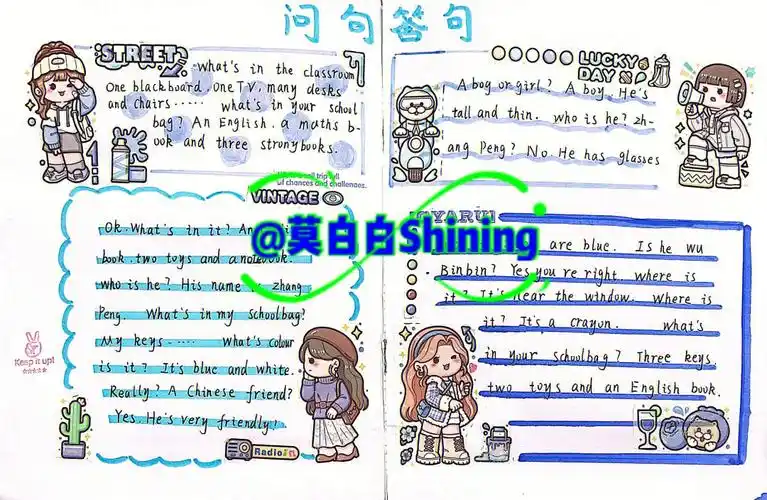 问句答句
STREET
What's in the classroom
One blackboard. One TV, many desks
and chairs...... what's in your school
bag? An English. a maths b-
ook and three strongbooks.
of chances and challenges.
VINTAGE
Ok. What's in it? An
book. two toys and a notebook.
who is he? His name is zhang
Peng. What's in my schoolbag?
My keys...... what's colour
is it? It's blue and white.
Really? A Chinese friend?
Yes. He's very friendly!
Keep it up!
Radio
LUCKY
DAY
A boy or girl? A boy. He's
tall and thin. who is he? zh-
ang Peng? No. He has glasses
GYARU
are blue. Is he wu
Binbin? Yes you're right. where is
it? It's near the window. Where is
it? It's a crayon. what's
in your schoolbag? Three keys
two toys and an English book.
@莫白白Shining